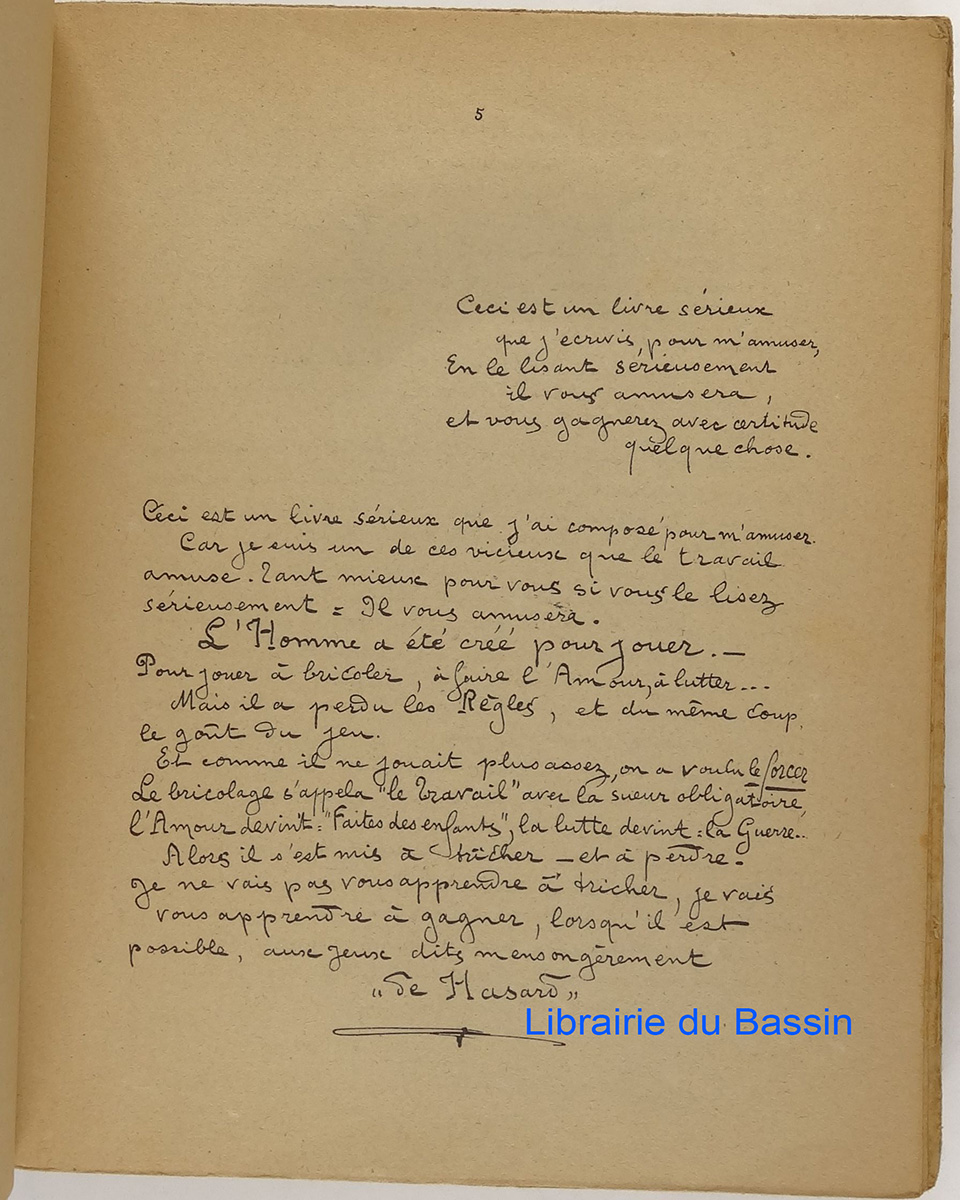 5
Ceci est un livre sérieux
que j'ecrivis, pour m'amuser,
En le lisant sérieusement
il vous amusera,
et vous gagnerez avec certitude
quelque chose.
Céci est un livre sérieux que j'ai composé pour m'amuser.
Car je suis un de ces vicieux que le travail
amuse. Tant mieux pour vous si vous le lisez
sérieusement = Il vous amusera.
L'Homme a été créé pour jouer. —
Pour jouer à bricoler, à faire l'Amour, à lutter...
Mais il a perdu les Règles, et du même coup,
le goût du jeu.
Et comme il ne jouait plus assez, on a voulu le forcer
Le bricolage s'appela "le Travail" avec la sueur obligatoire,
l'Amour devint = "Faites des enfants", la lutte devint : la Guerre..
Alors il s'est mis à tricher — et à perdre.
Je ne vais pas vous apprendre à tricher, je vais
vous apprendre à gagner, lorsqu'il est
possible, aux Jeux dits mensongèrement
"de Hasard"
Librairie du Bassin